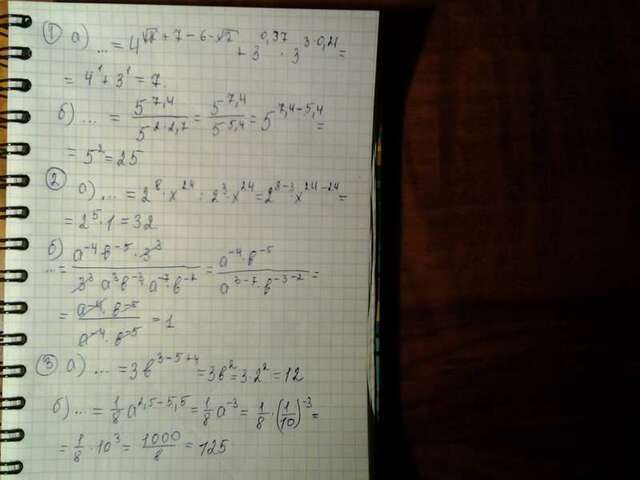 ① а) ... = 4^(√2 + 7 - 6 - √2) + 3^(0,37) · 3^(3·0,21) =
= 4^1 + 3^1 = 7.
б) ... = 5^(7,4) / 5^(2·2,7) = 5^(7,4) / 5^(5,4) = 5^(7,4-5,4) =
= 5^2 = 25
② а) ... = 2^8 · x^24 : 2^3 · x^24 = 2^(8-3) · x^(24-24) =
= 2^5 · 1 = 32
б) ... = (a^(-4) b^(-5) · 3^3) / (3^3 a^3 b^(-3) · a^(-7) · b^(-2)) = (a^(-4) · b^(-5)) / (a^(3-7) · b^(-3-2)) =
= (a^(-4) · b^(-5)) / (a^(-4) · b^(-5)) = 1
③ а) ... = 3b^(3-5+4) = 3b^2 = 3·2^2 = 12
б) ... = 1/8 a^(2,5-5,5) = 1/8 a^(-3) = 1/8 · (1/10)^(-3) =
= 1/8 · 10^3 = 1000/8 = 125